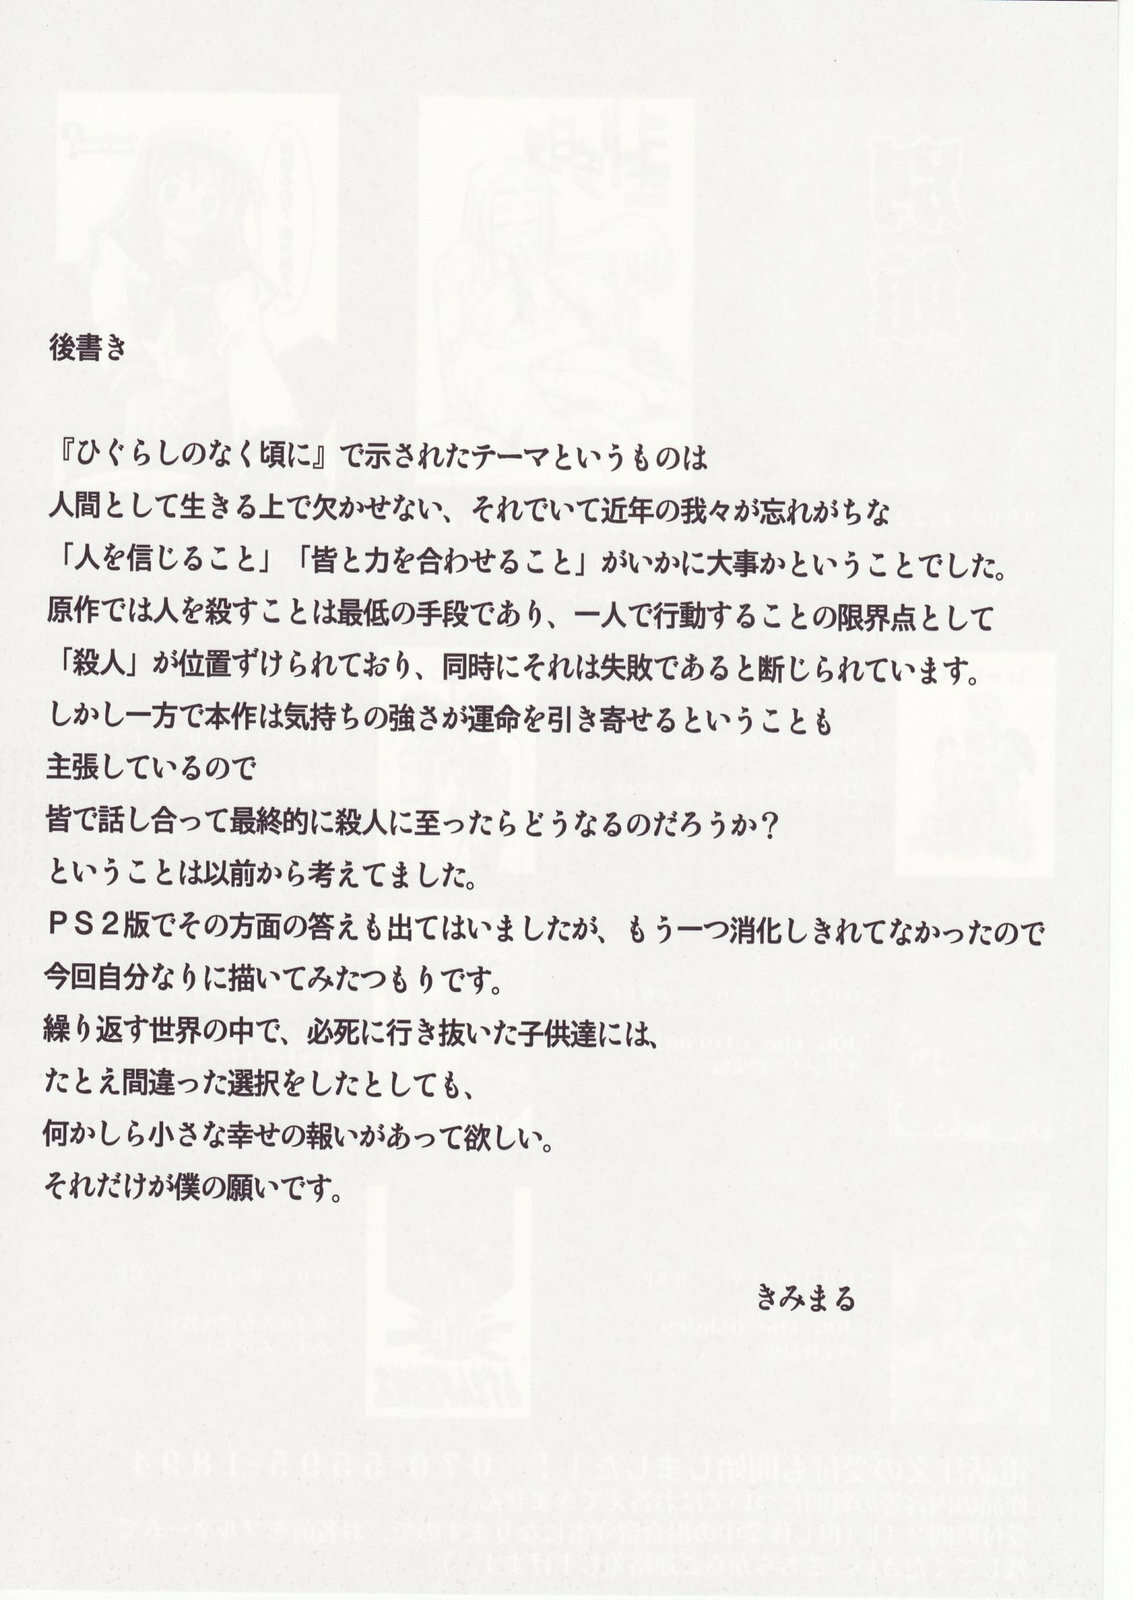 後書き
『ひぐらしのなく頃に』で示されたテーマというものは
人間として生きる上で欠かせない、それでいて近年の我々が忘れがちな
「人を信じること」「皆と力を合わせること」がいかに大事かということでした。
原作では人を殺すことは最低の手段であり、一人で行動することの限界点として
「殺人」が位置ずけられており、同時にそれは失敗であると断じられています。
しかし一方で本作は気持ちの強さが運命を引き寄せるということも
主張しているので
皆で話し合って最終的に殺人に至ったらどうなるのだろうか？
ということは以前から考えてました。
ＰＳ２版でその方面の答えも出てはいましたが、もう一つ消化しきれてなかったので
今回自分なりに描いてみたつもりです。
繰り返す世界の中で、必死に行き抜いた子供達には、
たとえ間違った選択をしたとしても、
何かしら小さな幸せの報いがあって欲しい。
それだけが僕の願いです。
きみまる